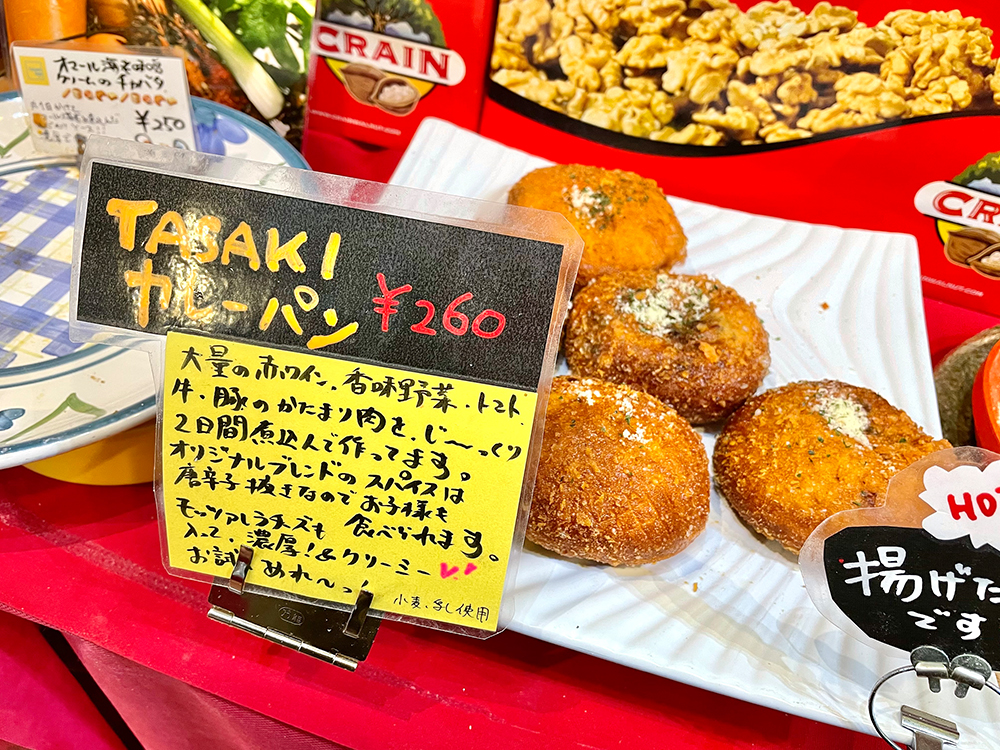 CRAIN
オマール海老味噌
クリームのチャバタ
¥250
TASAKI
カレーパン
¥260
大量の赤ワイン、香味野菜・トマト
牛・豚のかたまり肉を、じ〜っくり
2日間煮込んで作ってます。
オリジナルブレンドのスパイスは
唐辛子抜きなのでお子様も
食べられます。
モッツァレラチーズも
入って、濃厚!&クリーミー
お試しあれ〜っ!
小麦、乳使用
HO
揚げた
です